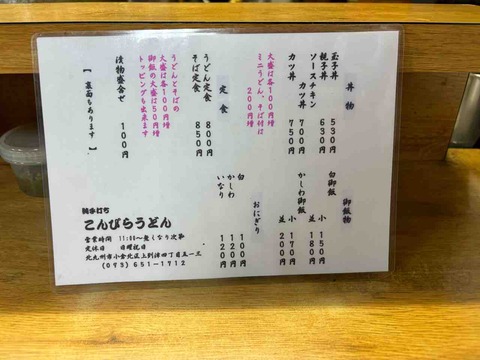 丼物
玉子丼 530円
親子丼 630円
ソースチキン
カツ丼 700円
カツ丼 750円
大盛は各100円増
ミニうどん、そば付は
200円増
定食
うどん定食 800円
そば定食 850円
うどんとそばの
大盛は各100円増
御飯の大盛は50円増
トッピングも出来ます
漬物盛合せ 100円
【裏面もあります】
御飯物
白御飯 小 150円
並 180円
かしわ御飯 小 170円
並
おにぎり
白
かしわ
いなり
純手打ち
こんぴらうどん
営業時間 11:00~無くなり次第
定休日 日曜祝日
北九州市小倉北区上到津四丁目五一三
(093)651-1712